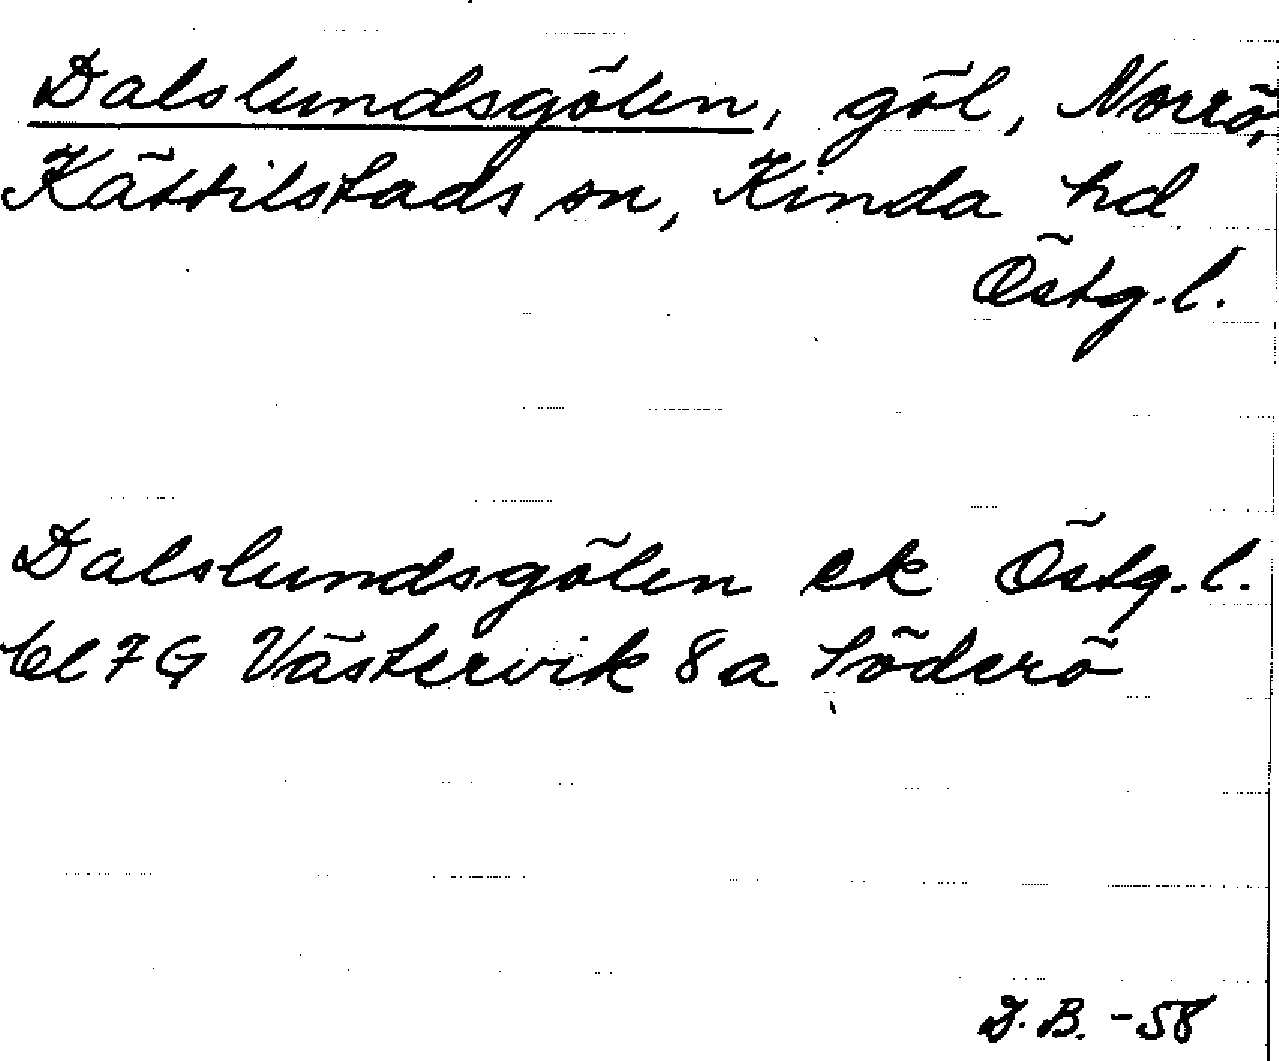 Dalslundsgölen, göl, Norrö,
Kättilstads sn, Kinda hd
Östg.l.
Dalslundsgölen ek Östg.l.
bl 7 G Västervik 8a Söderö
D.B. -58